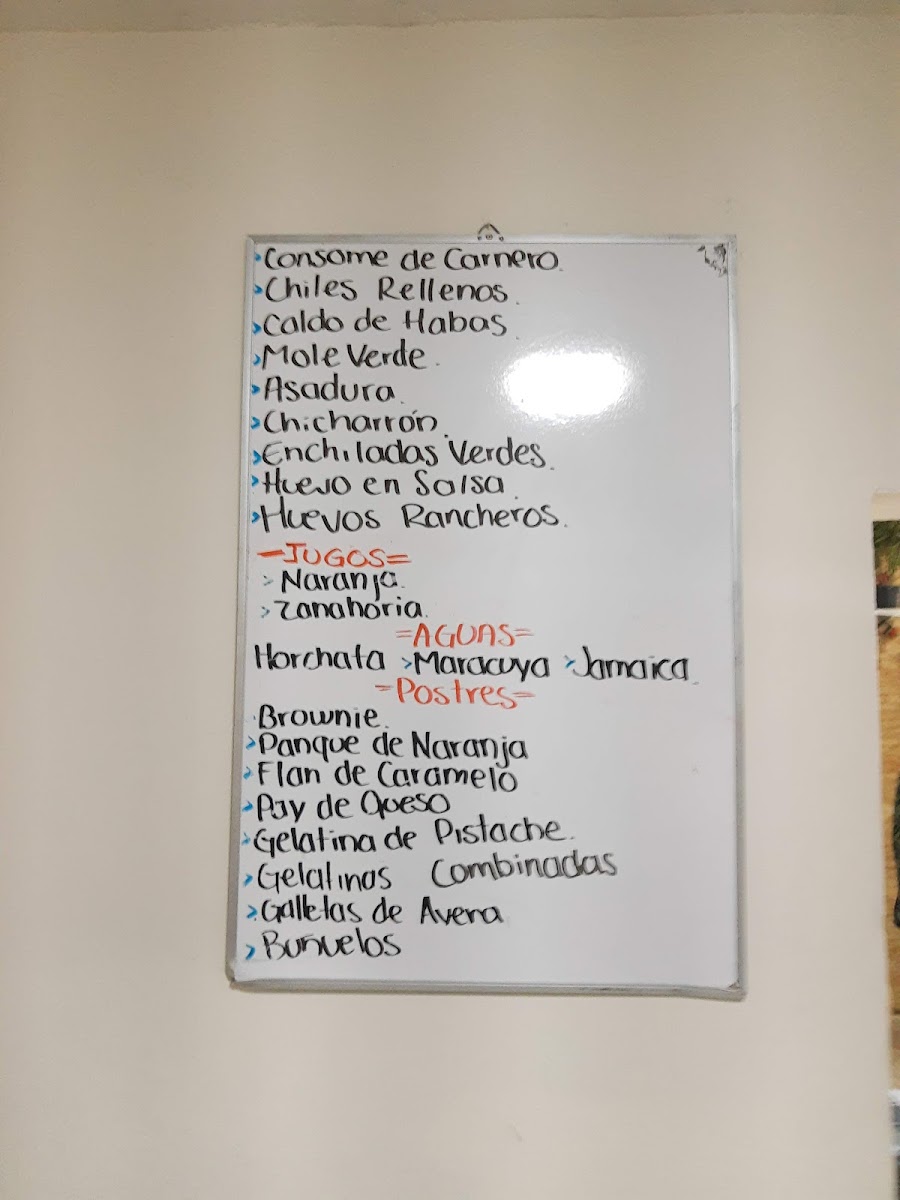 ›Consome de Carnero.
›Chiles Rellenos.
›Caldo de Habas
›Mole Verde.
›Asadura.
›Chicharrón.
›Enchiladas Verdes.
›Huevo en Salsa.
›Huevos Rancheros.
-JUGOS=
›Naranja.
›Zanahoria.
=AGUAS=
Horchata ›Maracuya ›Jamaica.
-Postres=
Brownie.
›Panque de Naranja
›Flan de Caramelo
›Pay de Queso
›Gelatina de Pistache.
›Gelatinas Combinadas
›Galletas de Avena
›Buñuelos